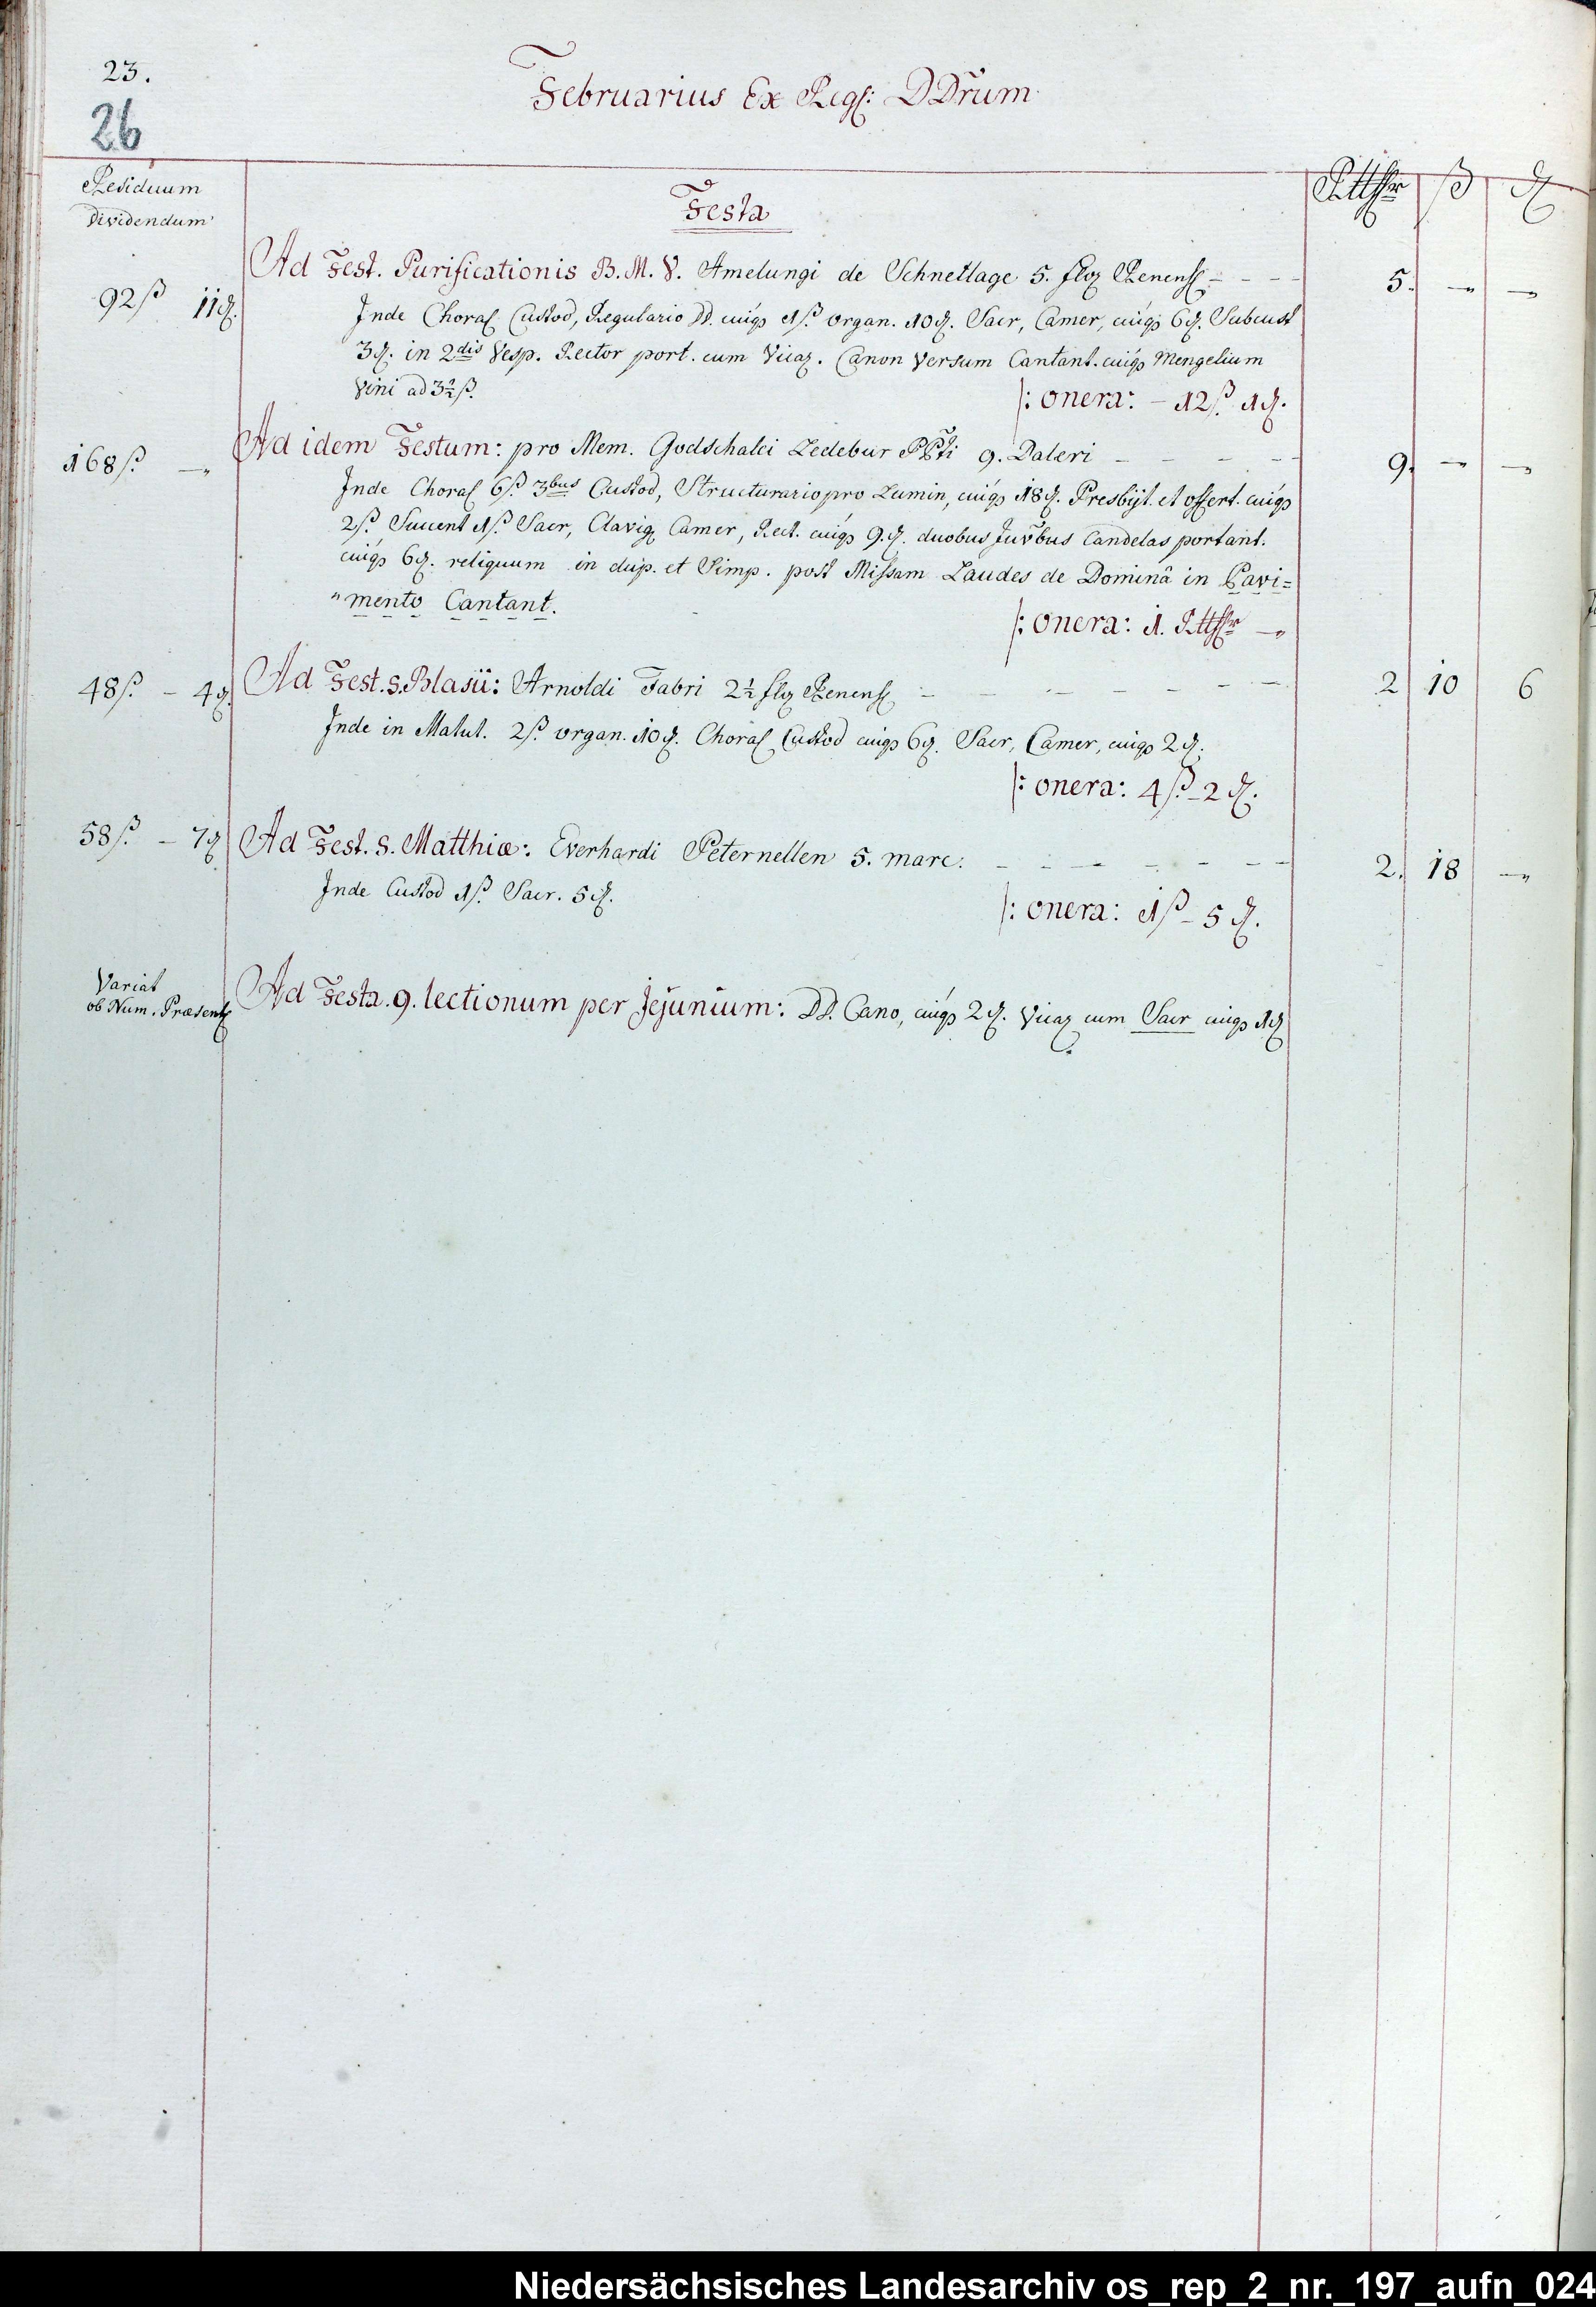 23.
26
Februarius Ex Regs: DDrum
Residuum
Dividendum
Festa
Rtthlr ß ₰
Ad Fest. Purificationis B. M. V. Amelungi de Schnetlage 5. flor Renens - - - 5. — —
92 ß 11 ₰.
Inde Choral Custod, Regulario DD. cuiqs 1 ß. organ. 10 ₰. Sacr, Camer, cuiqs 6 ₰. Subcust
3 ₰. in 2dis Vesp. Rector port. cum Vicar. Canon Versum Cantant. cuiqs Mengelium
Vini ad 3½ ß.
/: onera: – 12 ß. 1 ₰.
168 ß. — Ad idem Festum: pro Mem. Godschalci Ledebur PPti 9. Daleri - - - - 9. — —
Inde Choral 6 ß. 3bus Custod, Structurario pro Lumin, cuiqs 18 ₰. Presbyt. et offert. cuiqs
2 ß. Succent 1 ß. Sacr, Clavig, Camer, Rect. cuiqs 9. ₰. duobus Juvbus Candelas portant.
cuiqs 6 ₰. reliquum in dup. et Simp. post Missam Laudes de Dominâ in Pavi=
"mento Cantant.
/: onera: 1. Rtthlr —
48 ß. – 4 ₰. Ad Fest. S. Blasii: Arnoldi Fabri 2½ flor Renens - - - - - - - 2 10 6
Inde in Matut. 2 ß. organ. 10 ₰. Choral Custod cuiqs 6 ₰. Sacr, Camer, cuiqs 2 ₰.
/: onera: 4 ß – 2 ₰.
58 ß. – 7 ₰ Ad Fest. S. Matthiæ: Everhardi Peternellen 5. marc. - - - - - - - 2. 18 —
Inde Custod 1 ß. Sacr. 5 ₰.
/: onera: 1 ß – 5 ₰.
Variat
ob Num. Præsent
Ad Festa. 9. lectionum per Jejunium: DD. Cano, cuiqs 2 ₰. Vicar cum Sacr cuiqs 1 ₰
Niedersächsisches Landesarchiv os_rep_2_nr._197_aufn_024